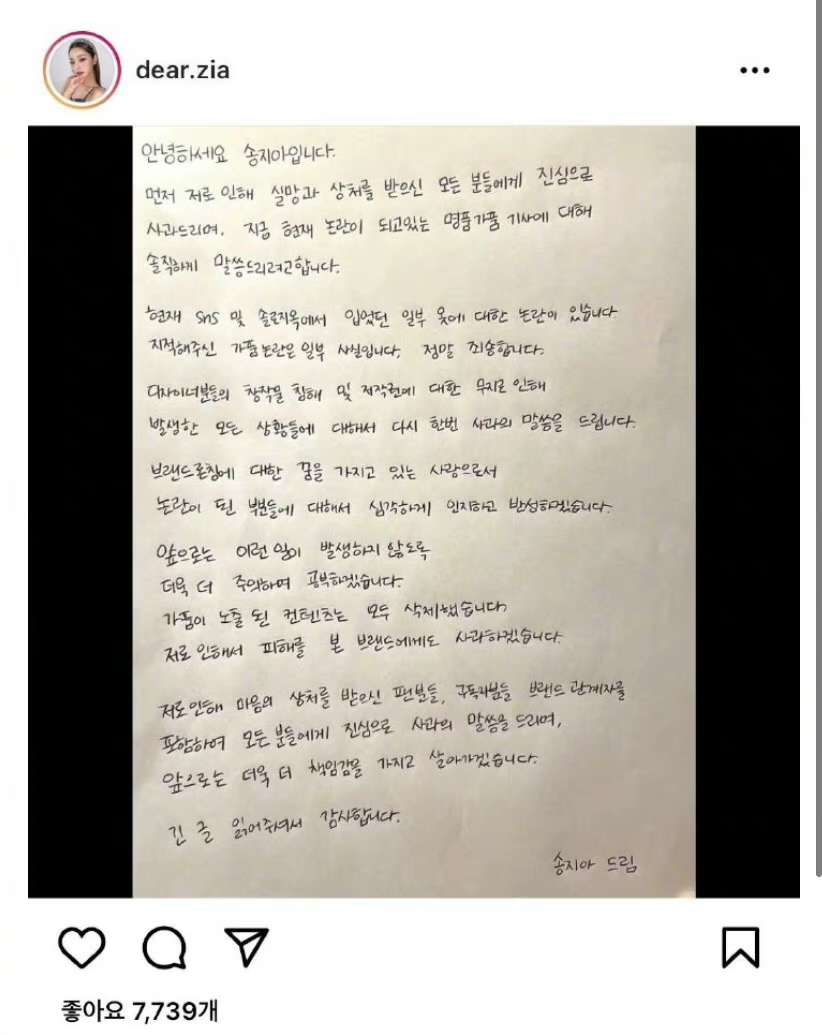 dear.zia
안녕하세요 송지아입니다.
먼저 저로 인해 실망과 상처를 받으신 모든 분들에게 진심으로
사과드리며, 지금 현재 논란이 되고있는 명품가품 기사에 대해
솔직하게 말씀드리려고합니다.
현재 SNS 및 솔로지옥에서 입었던 일부 옷에 대한 논란이 있습니다
지적해주신 가품논란은 일부 사실입니다. 정말 죄송합니다.
디자이너분들의 창작물 침해 및 저작권에 대한 무지로 인해
발생한 모든 상황들에 대해서 다시 한번 사과의 말씀을 드립니다.
브랜드론칭에 대한 꿈을 가지고 있는 사람으로서
논란이 된 부분들에 대해서 심각하게 인지하고 반성하겠습니다.
앞으로는 이런일이 발생하지 않도록
더욱 더 주의하며 공부하겠습니다.
가품이 노출 된 컨텐츠는 모두 삭제했습니다
저로인해서 피해를 본 브랜드에게도 사과하겠습니다.
저로인해 마음의 상처를 받으신 팬분들, 구독자분들 브랜드 관계자를
포함하여 모든 분들에게 진심으로 사과의 말씀을 드리며,
앞으로는 더욱 더 책임감을 가지고 살아가겠습니다.
긴 글 읽어주셔서 감사합니다.
송지아 드림
좋아요 7,739개